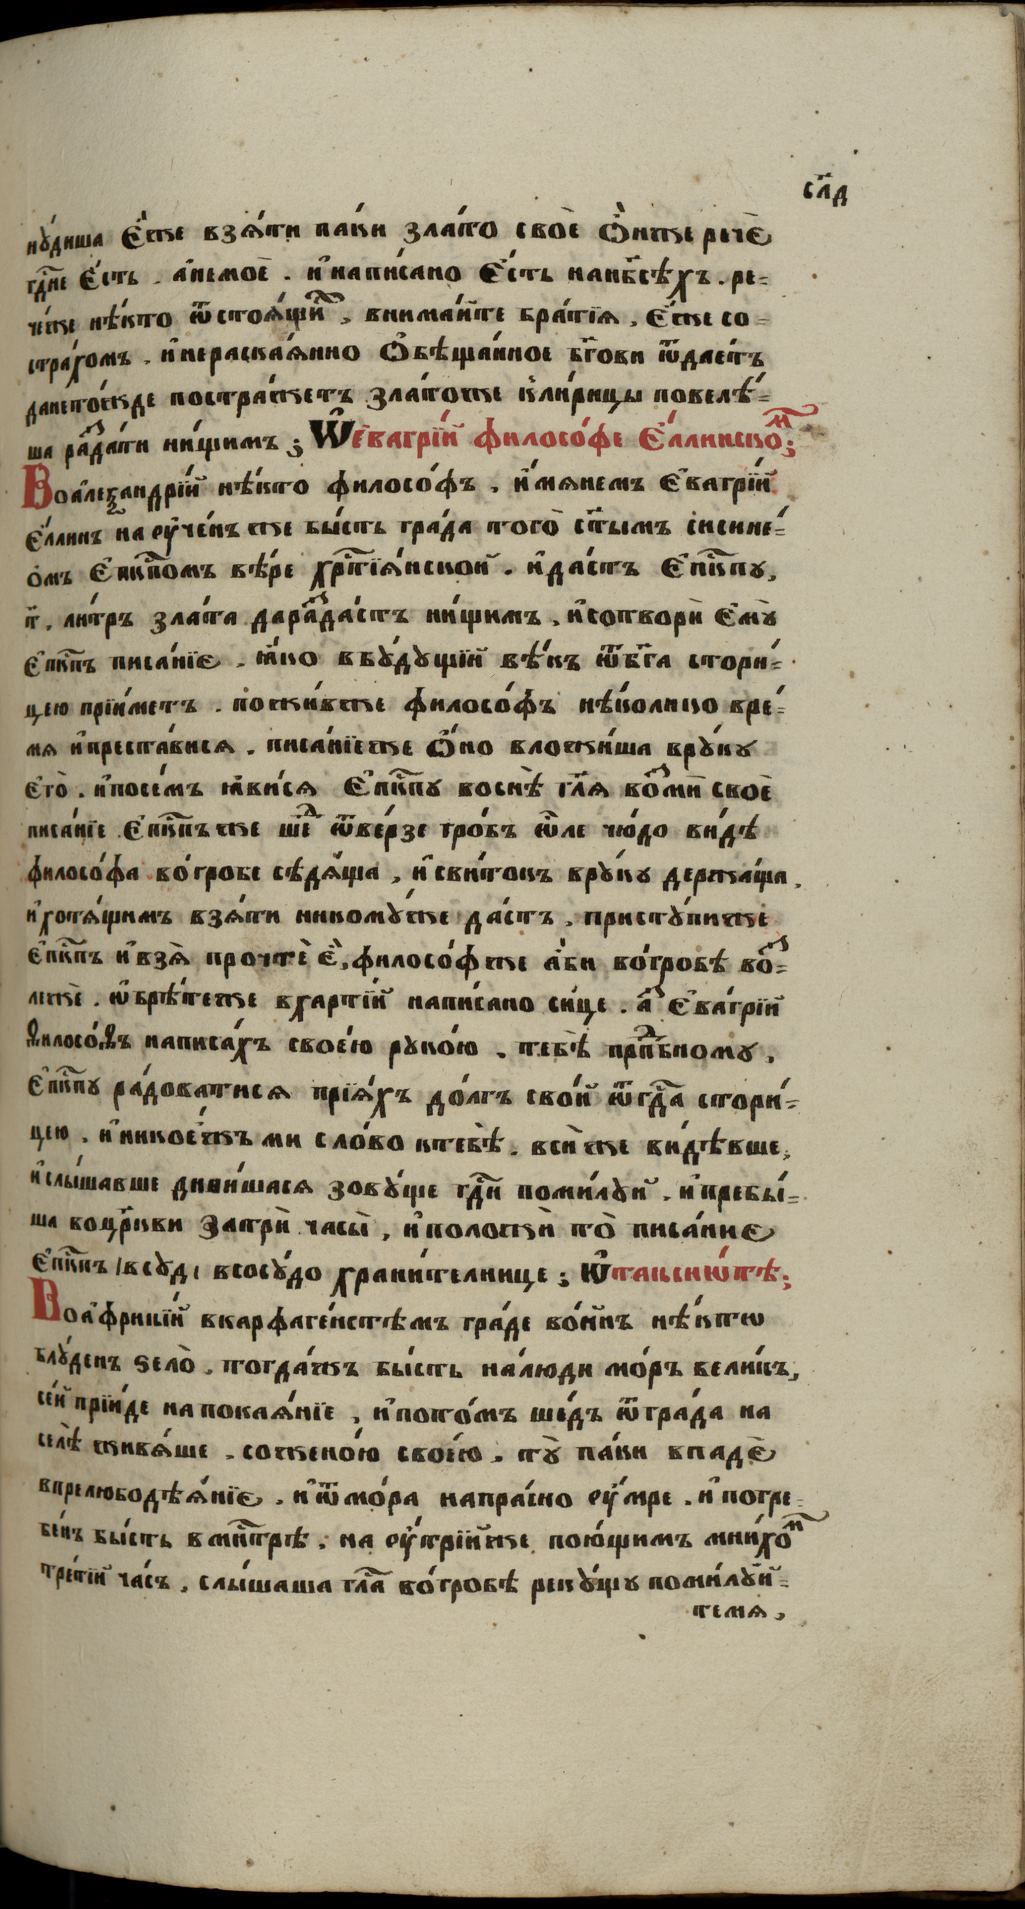 сл҃д
ну́диша є҆́же взѧ́ти па́ки зла́то своѐ ѻ҆́нже речѐ
гд҇не є҆́сть . а҆немоѐ . и҆написано є҆́сть нанбсѣ́хъ . ре-
че́же нѣ́кто ѿстоѧ́щиⷯ , внима́йте бра́тїѧ , є҆́же со-
стра́хомъ . и҆нераска́ѧнно ѻ҆бѣща́нное бг҃ови ѿдае́тъ
дането́жде постра́жетъ зла́тоже кли́рицы повелѣ́-
ша раⷥда́ти ни́щимъ ; Ѡ҆є҆ва́грїй филосо́фе є҆́ллинскоⷨ ;
Воа҆леѯандрі́й нѣ́кто филосо́фъ , и҆́мянемъ є҆ва́грїй
є҆́ллинъ наꙋ҆че́нъже бы́сть гра́да того̀ ст҃ымъ сисине́-
омъ є҆пкⷭ҇помъ вѣ́ре хрⷭ҇тїѧ́нской . и҆да́стъ є҆пкⷭ҇пу ,
т҃ . ли́тръ зла́та дараⷥда́стъ ни́щимъ , и҆сотворѝ є҆мꙋ̀
є҆пкⷭ҇пъ писа́нїє . ꙗ҆́ко вбꙋ́дꙋщїй вѣ́къ ѿбг҃а стори́-
цею прїи́метъ . пожи́вже филосо́фъ нѣ́колико вре́-
мя и҆преста́виса . писа́нїеже ѻ҆́но вложи́ша врꙋ́кꙋ
є҆гѡ̀ . и҆посе́мъ ꙗ҆ви́сѧ є҆пкⷭ҇пꙋ воснѣ̀ гл҃ѧ воⷥмѝ своѐ
писа́нїе є҆пкⷭ҇пъже шеⷣ ѿве́рзе гро́бъ ѻ҆́ле чю́до ви́дѣ
филосо́фа во́гробе сѣдѧ́ща , и҆сви́токъ врꙋ́кꙋ держа́ща .
и҆хотѧ́щимъ взѧ́ти никомꙋ́же да́стъ . пристꙋ́пиже
є҆пкⷭ҇пъ и҆взѧ̀ прочтѐ є҆̀ , филосо́фже а҆́би во́гробѣ воⷥ-
лежѐ . ѡ҆брѣ́теже вха́ртїй напи́сано си́це . аⷥ є҆ва́грїй
ѳилосо́ѳъ написа́хъ свое́ю рꙋко́ю . тебѣ̀ прпⷣбномꙋ ,
є҆пкⷭ҇пꙋ ра́доватисѧ прїѧ́хъ до́лгъ сво́й ѿгдⷭ҇а стори́-
цею . и҆никое́жъ ми сло́во ктебѣ̀ . всѝже ви́дѣвше ,
и҆слы́шавше диви́шася зовꙋ́ще гдⷭ҇и поми́лꙋй . и҆пребы́-
ша воцрⷦ҇ви затрѝ часы̀ , и҆положѝ то̀ писа́ниє
є҆пкⷭ҇пъ /всꙋд/ всосꙋ́до храни́телнице ; Ѡ҆таксиѡ́тѣ ;
Воа҆фрики́й вкарфаге́нстѣмъ гра́де во́йнъ нѣ́ктѡ
блꙋ́денъ ѕело̀ . тогда́жъ бы́сть на́люди мо́ръ вели́къ ,
се́й прїи́де на покаѧ́нїе , и҆пото́мъ ше́дъ ѿгра́да на
селѣ̀ живѧ́ше . сожено́ю свое́ю . тꙋ̀ па́ки впадѐ
впрелюбодѣѧ́нїє . и҆ѿмо́ра напра́сно ꙋ҆́мре . и҆погре-
бе́нъ бы́сть вмн҇трѣ . на ꙋ҆́трїйже пою́щимъ мни́хоⷨ
тре́тїй ча́съ , слы́шаша гла҇ во́гробѣ рекꙋ́щꙋ поми́лꙋй-
темѧ ,